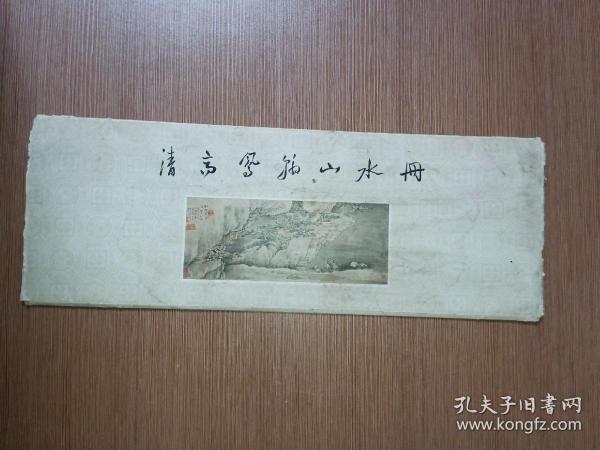 清高凤翰山水册
孔夫子旧書网
www.kongfz.com